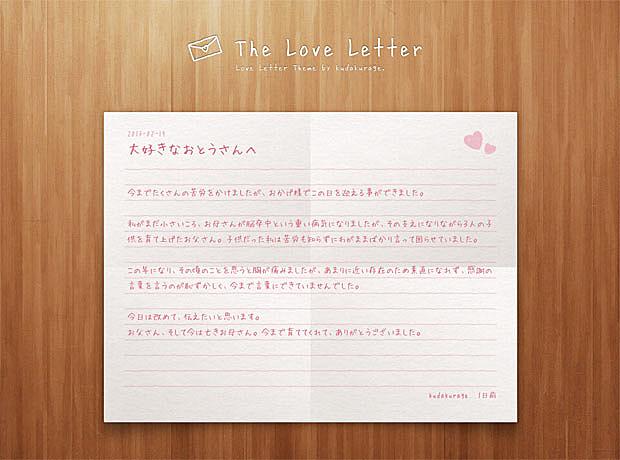 The Love Letter
Love Letter Theme by kudakurage.
大好きなおとうさんへ
今までたくさんの苦労をかけましたが、おかげ様でこの日を迎える事ができました。
私がまだ小さいころ、お母さんが脳卒中という重い病気になりましたが、その支えになりながら3人の子
供を育て上げたお父さん。子供だった私は苦労も知らずにわがままばかり言って困らせていました。
この年になり、その頃のことを思うと胸が痛みましたが、あまりに近い存在のため素直になれず、感謝の
言葉を言うのが恥ずかしく、今まで言葉にできていませんでした。
今日は改めて、伝えたいと思います。
お父さん、そして今は亡きお母さん。今まで育ててくれて、ありがとうございました。
kudakurage. 1日前